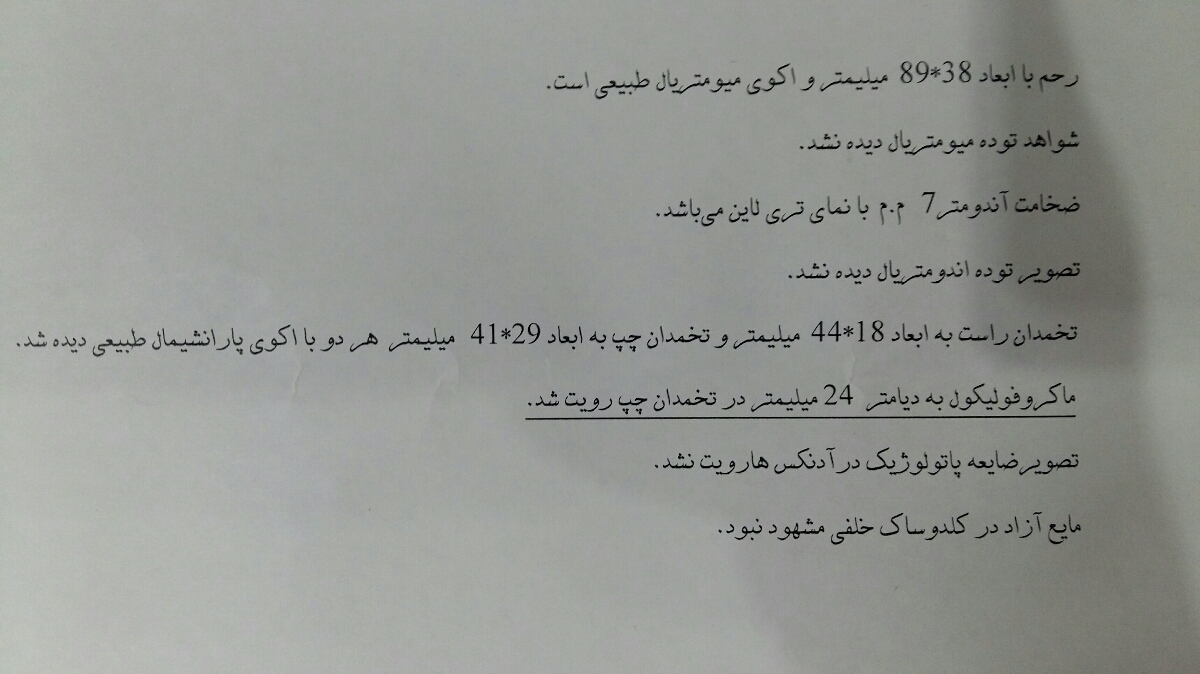 رحم با ابعاد 38*89 میلیمتر و اکوی میومتریال طبیعی است.
شواهد توده میومتریال دیده نشد.
ضخامت آندومتر7 م.م با نمای تری لاین می‌باشد.
تصویر توده اندومتریال دیده نشد.
تخمدان راست به ابعاد 18*44 میلیمتر و تخمدان چپ به ابعاد 29*41 میلیمتر هر دو با اکوی پارانشیمال طبیعی دیده شد.
ماکروفولیکول به دیامتر 24 میلیمتر در تخمدان چپ رویت شد.
تصویرضایعه پاتولوژیک درآدنکس هارویت نشد.
مایع آزاد در کلدوساک خلفی مشهود نبود.